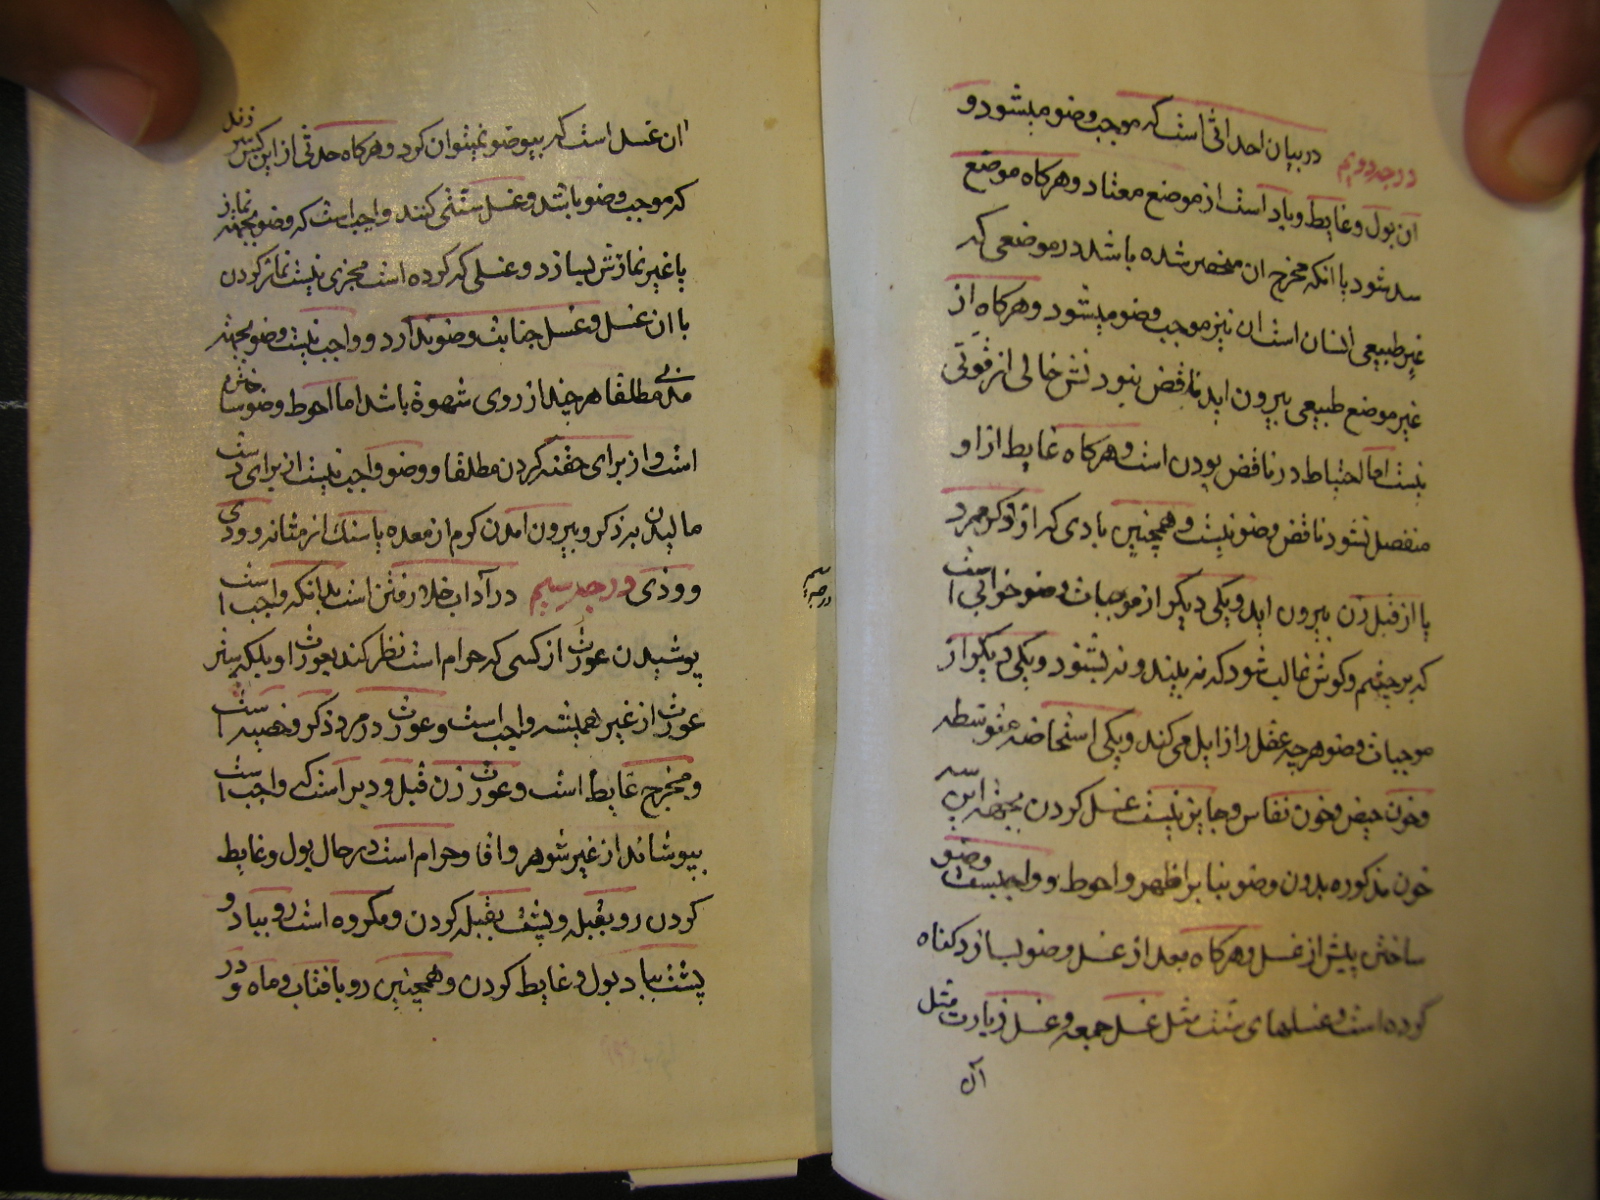 درجه دویم در بیان احداثی است که موجب وضو میشود و
آن بول و غایط و باد است از موضع معتاد و هرکاه موضع
سد شود یا انکه مخرج ان منحصر شده باشد در موضعی که
غیر طبیعی انسان است ان نیز موجب وضو میشود و هرکاه از
غیر موضع طبیعی بیرون اید ناقض بودنش خالی از قوتی
نیست اما احتیاط در ناقض بودن است و هرکاه غایط از او
منفصل نشود ناقض وضو نیست و همچنین بادی که از ذکر مرد
یا از قبل زن بیرون اید و یکی دیکر از موجبات وضو خوابی است
که بر چشم و کوش غالب شود که نه بیند و نه بشنود و یکی دیکر از
موجبات وضو هر چه عقل را زایل می کند و یکی استحاضه متوسطه
و خون حیض و خون نفاس و جایز نیست غسل کردن بجهة این سه
خون مذکوره بدون وضو بنا بر اظهر و احوط و واجبست وضو
ساختن پیش از غسل و هرکاه بعد از غسل وضو بسازد کناه
کرده است و غسلهای سنت مثل غسل جمعه و غسل زیارت مثل
آن
ان غسل است که بیوضو نمیتوان کرد و هرکاه حدثی از این کس سر زند
که موجب وضو باشد و غسل سنتی کنند واجب است که وضو بجهة نماز
یا غیر نمازش بسازد و غسلی که کرده است مجزی نیست نماز کردن
با ان غسل و غسل جنابت وضو ندارد و واجب نیست وضو بجهة
مذی مطلقا هر چند از روی شهوة باشد اما احوط وضو ساختن
است و از برای حقنه کردن مطلقا و وضو واجب نیست از برای دست
مالیدن بذکر و بیرون امدن کرم از معده یا سنک از مثانه و ودی
و وذی درجه سیم در آداب خلا رفتن است بدانکه واجب است
پوشیدن عورت از کسی که حرام است نظر کند بعورت او بلکه ستر
عورت از غیر همیشه واجب است و عورت در مرد ذکر و خصیه است
و مخرج غایط است و عورت زن قبل و دبر است که واجب است
بپوشاند از غیر شوهر و اقا و حرام است در حال بول و غایط
کردن رو بقبله و پشت بقبله کردن و مکروه است رو بباد و
پشت بباد بول و غایط کردن و همچنین رو بافتاب و ماه و در
درجه سیم